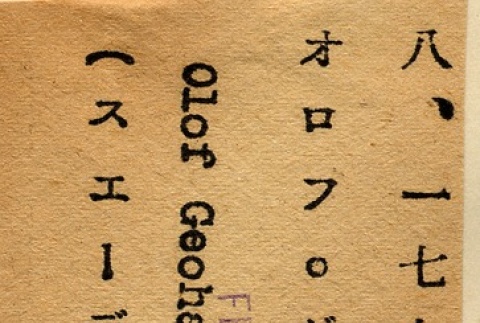 八、一七
オロフ。
Olof Geoha
(スエーデ